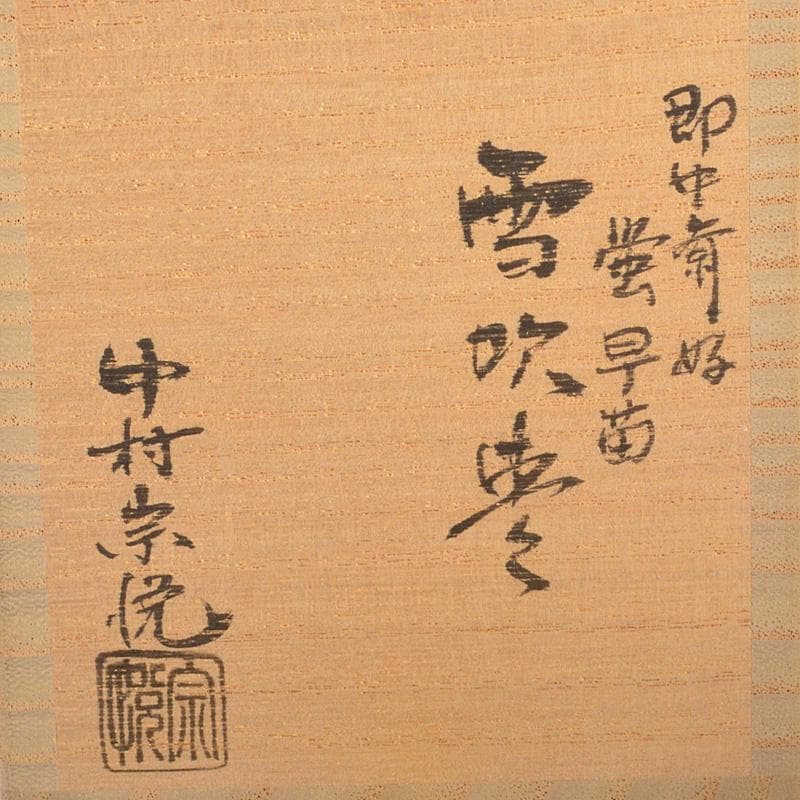 即中斎好
螢早苗
雪吹棗
中村宗悦
宗悦